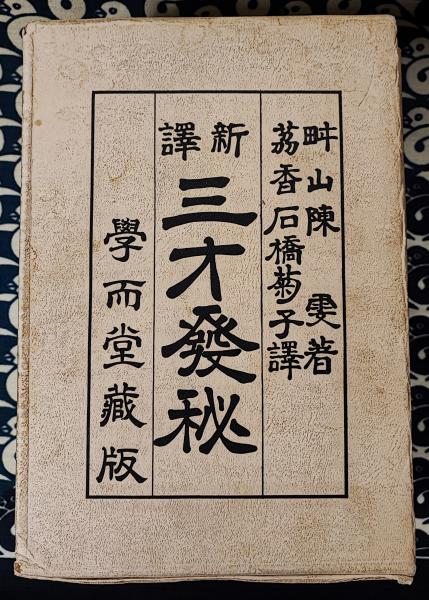 畊山陳雯著
茘香石橋菊子譯
新譯
三才發秘
學而堂藏版